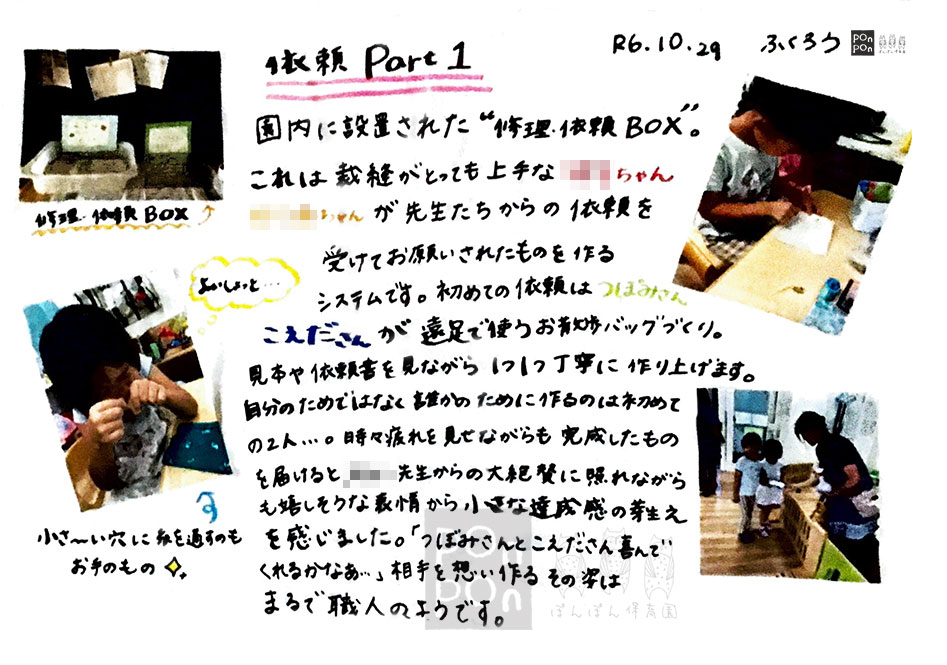 依頼 Part 1
R6.10.29 ふくろう
PonPon
園内に設置された“修理・依頼BOX”。
これは裁縫がとっても上手な ちゃん
ちゃんが先生たちからの依頼を
受けてお願いされたものを作る
システムです。初めての依頼はつぼみさん
こえださんが遠足で使うお散歩バッグづくり。
見本や依頼書を見ながら1つ1つ丁寧に作り上げます。
自分のためではなく誰かのために作るのは初めて
の2人…。時々疲れを見せながらも完成したもの
を届けると 先生からの大絶賛に照れながら
も嬉しそうな表情から小さな達成感の芽生え
を感じました。「つぼみさんとこえださん喜んで
くれるかなあ…」相手を想い作るその姿は
まるで職人のようです。
修理・依頼BOX
よいしょっと…
小さ〜い穴に糸を通すのも
お手のもの
PonPon
ぽんぽん保育園